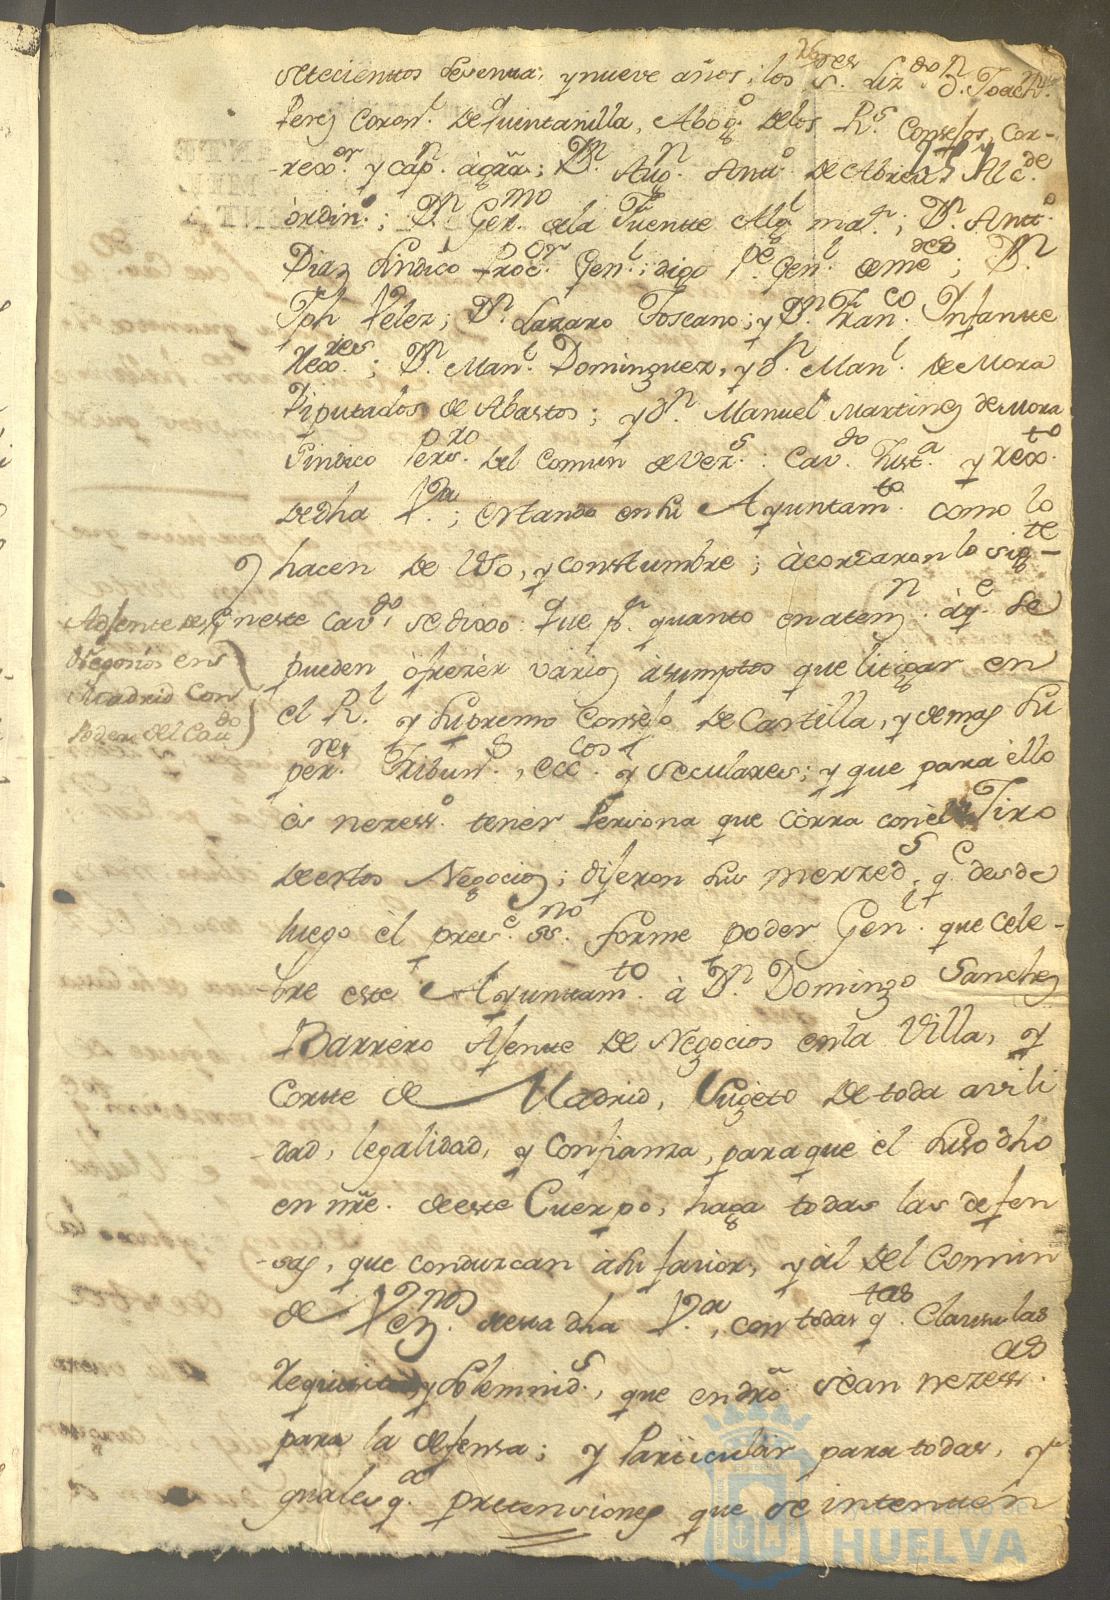 setecientos setenta, y nueve años; los S.res Liz.do D.n Joach.n
Perez Coron.l de Quintanilla, Abog.o de los R.s Consejos, Cor-
rex.or y Cap.n à grã; D.n Aug.n Ant.o de Abreu, Alc.de
òrdin.o; D.n Ger.mo de la Fuente Alg.l ma.r; D.n Ant.o
Diaz Sindico Proc.or Gen.l; digo P.e Gen.l de me.des; D.n
Jph Velez; D.n Lazaro Toscano; y D.n Fran.co Infante
Rex.res; D.n Man.l Dominguez, y D.n Man.l de Mora
Diputados de Abastos; y D.n Manuel Martinez de Mora
Sindico Pers.ro del Comun de Vez.s: Cav.do Just.a y Rex.to
de dha V.a; estando en su Ayuntam.to como lo
hacen de uso, y constumbre; àcordaron lo sig.te-
En este Cav.do se dixo: Que p.r quanto en aten.n àq.e se
Adjente de
Negocios en
Madrid con
Poder del Cav.do
pueden òfrezer varios àsumptos que litigar en
el R.l y Supremo Consejo de Castilla, y demas Su
per.res Tribun.s, ecc.cos y seculares; y que para ello
ès nezess.o tener Persona que còrra con èl Jiro
de estos Negocios; dijeron sus merzed.s q.e desde
luego èl pres.e ss.no forme poder Gen.l que cele-
bre este Ayuntam.to à D.n Domingo Sanchez
Barrero Ajente de Negocios en la Villa, y
Corte de Madrid, Sugeto de toda avili
dad, legalidad, y confianza, para que èl susodho
en nre. de este Cuerpo, haga todas las defen
sas, que conduzcan à su favior, y àl del Comun
de Vez.nos de esta dha V.a, con todas q.tas Clausulas
Requisitos, y solemnid.s, que en drõ. sèan nezess.as
para la defensa; y Particular para todas, y
quales q.a pretensiones que se intenten
Ayuntamiento de
HUELVA